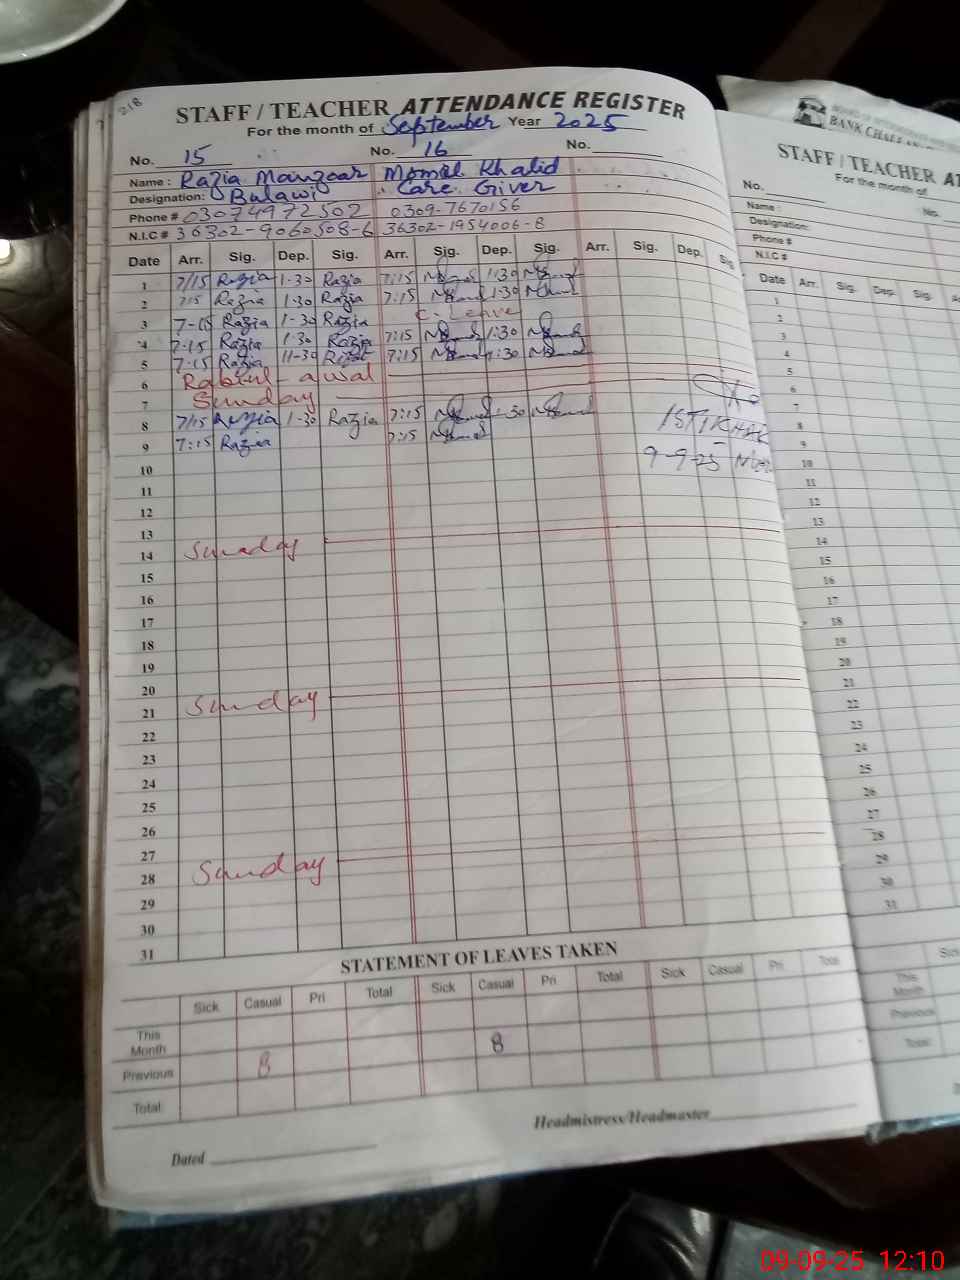 218
STAFF / TEACHER ATTENDANCE REGISTER
For the month of September Year 2025
No. 15 No. 16 No.
Name : Razia Manzoor Momal Khalid
Designation: Bulawi Care Giver
Phone # 03074972502 0309-7670156
N.I.C # 36302-9060508-6 36302-1954006-8
Date Arr. Sig. Dep. Sig. Arr. Sig. Dep. Sig. Arr. Sig. Dep. Sig
1 7/15 Razia 1-30 Razia 7:15 1:30
2 7:15 Razia 1.30 Razia 7:15 1:30
3 7-15 Razia 1-30 Razia C. Leave
4 7.15 Razia 1.30 Razia 7:15 1:30
5 7:15 Razia 11-30 7:15 1:30
6 Rabiul - awal
7 Sunday
8 7/15 Razia 1-30 Razia 7:15 1:30
9 7:15 Razia 7:15
9-9-25
10
11
12
13
14 Sunday
15
16
17
18
19
20
21 Sunday
22
23
24
25
26
27
28 Sunday
29
30
31
STATEMENT OF LEAVES TAKEN
Sick Casual Pri Total Sick Casual Pri Total Sick Casual Pri Total
This Month
Previous 8 8
Total
Headmistress/Headmaster
Dated
BANK
STAFF / TEACHER AT
For the month of
No. No.
Name :
Designation:
Phone #
N.I.C #
Date Arr. Sig. Dep. Sig. Arr.
1
2
3
4
5
6
7
8
9
10
11
12
13
14
15
16
17
18
19
20
21
22
23
24
25
26
27
28
29
30
31
Sick
This Month
Previous
Total
09-09-25 12:10